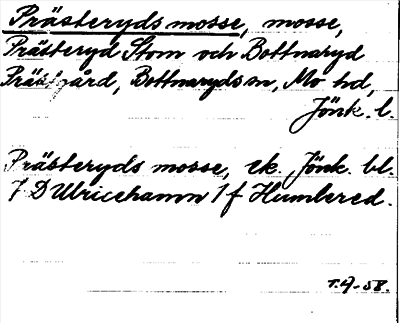 Prästeryds mosse, mosse,
Prästeryd Stom och Bottnaryd
Prästgård, Bottnaryds sn, Mo hd,
Jönk. l.
Prästeryds mosse, ek. Jönk. bl.
7 D Ulricehamn 1 f Humbered.
T.A-58.